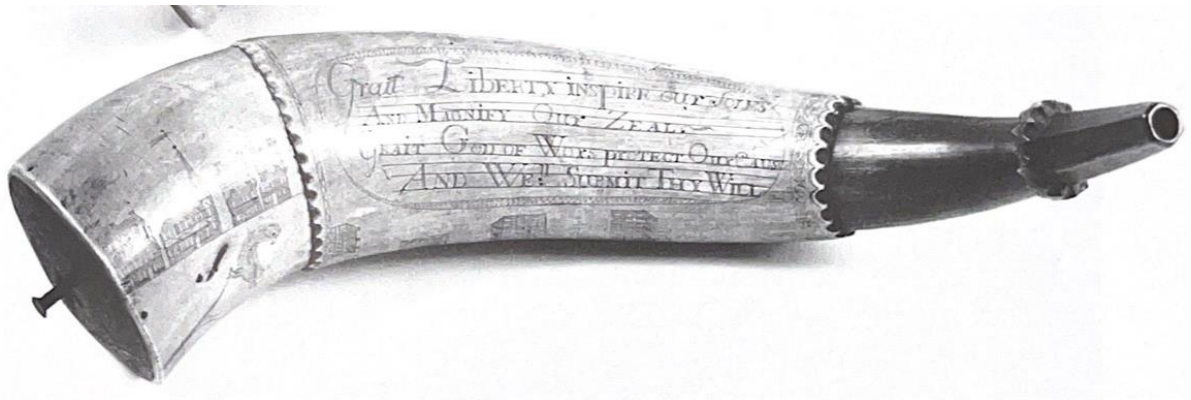 Grait Liberty inspire our Soles
And Magnify Our Zeal
Grait God of Wors protect Our Caus
And We'll Submit Thy Will